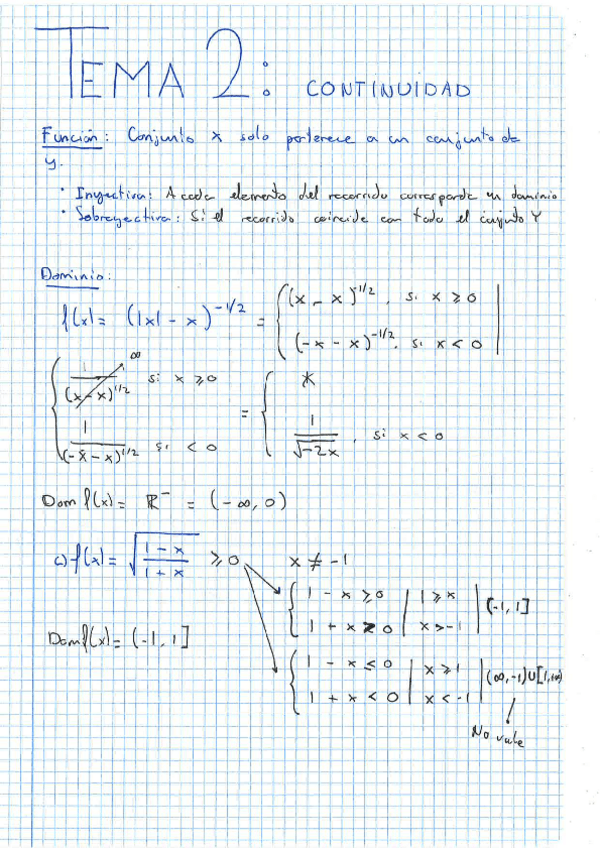 TEMA 2: CONTINUIDAD
Función: Conjunto x solo pertenece a un conjunto de
y.
· Inyectiva: A cada elemento del recorrido corresponde un dominio
· Sobreyectiva: Si el recorrido coincide con todo el conjunto Y
Dominio:
f(x) = (|x| - x)^-1/2 = { (x - x)^-1/2, si x ≥ 0
(-x - x)^-1/2, si x < 0 |
{ 1/(x - x)^1/2 ∞ si x ≥ 0 = { *
1/(-x - x)^1/2 si < 0 1/√-2x, si x < 0
Dom f(x) = R⁻ = (-∞, 0)
c) f(x) = √(1 - x)/(1 + x) ≥ 0 x ≠ -1
{ 1 - x ≥ 0 | 1 ≥ x | (-1, 1]
1 + x > 0 | x > -1
Dom f(x) = (-1, 1]
{ 1 - x ≤ 0 | x ≥ 1 | (∞, -1) U [1, +∞)
1 + x < 0 | x < -1
No vale